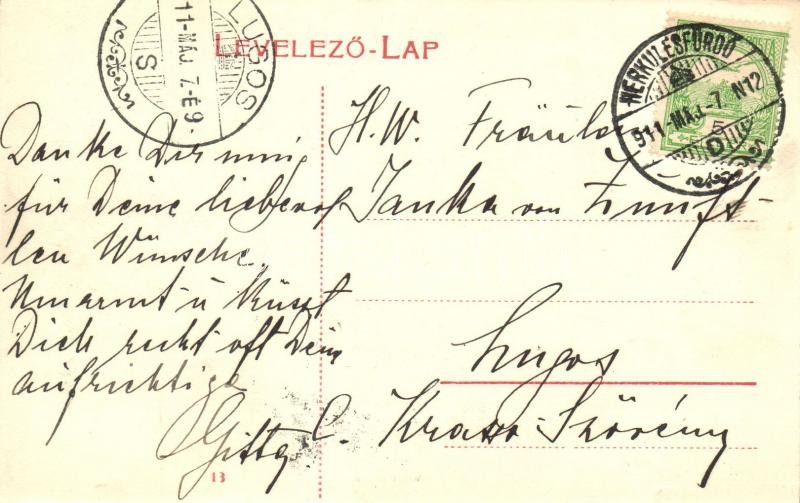 LEVELEZŐ-LAP
LUGOS
11-MÁJ. 7.-É9-
S
HERKULESFÜRDŐ
911 MÁJ.-7. N12
5
D
Danke Dir innig
für Deine liebevol
len Wünsche.
Umarmt u küsst
Dich recht oft Deine
aufrichtige
Gitta C.
H.W. Fräulein
Janka von
Lugos
Krasso-Szörény
13